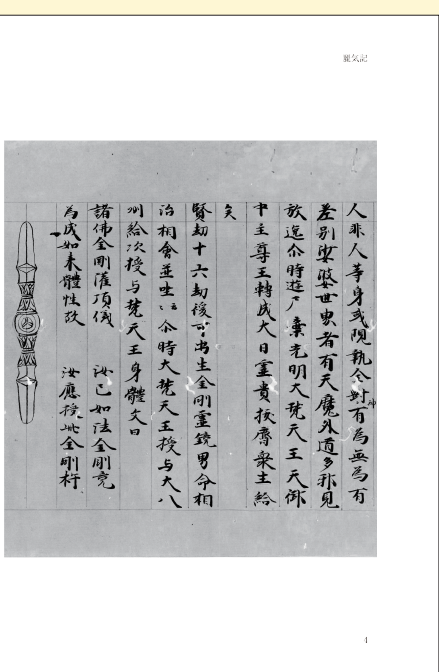 麗気記
人非人等身或現執令對有為無為有
差別娑婆世界者有天魔外道多邪見
放逸尒時遊 棄光明大梵天王天御
中主尊王轉成大日靈貴 摩衆生給
矣
賢劫十六劫後可出生金剛靈鏡男命相
治相會並坐 尒時大梵天王授与大八
州給次授与梵天王身體文曰
諸佛金剛灌頂儀 汝已如法金剛竟
為成如来體性故 汝應授此金剛杵
4